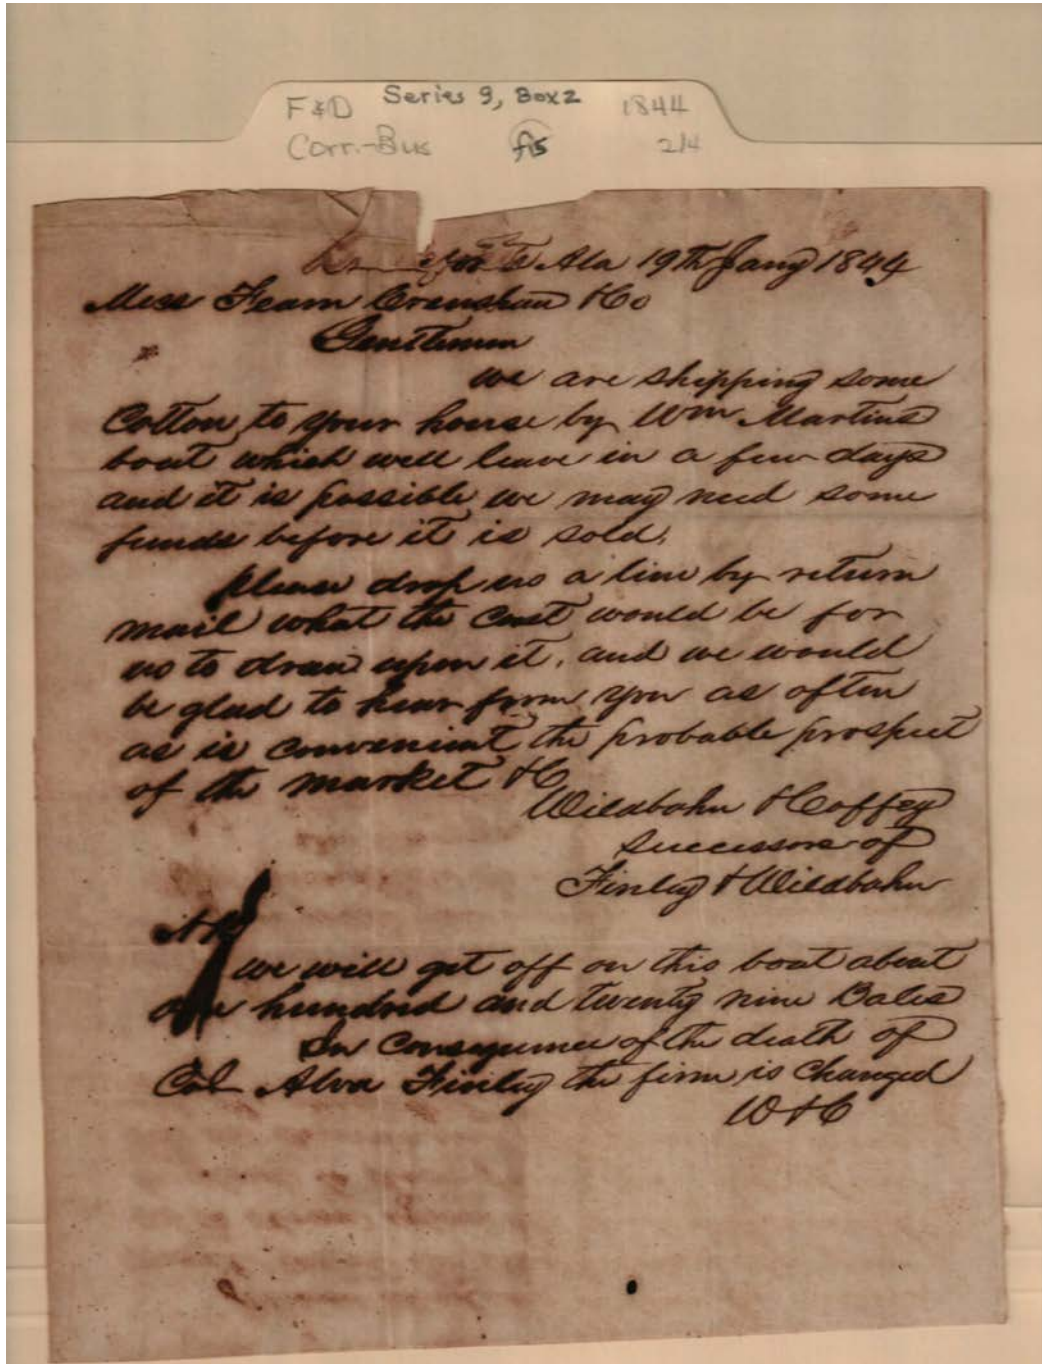 F&D Series 9, Box 2 1844
Corr.-Bus f15 2/4
Ala 19th Jany 1844
Mess Fearn Crenshaw & Co
Gentlemen
we are shipping some
Cotton to your house by Wm Martins
boat which will leave in a few days
and it is possible we may need some
funds before it is sold.
please drop us a line by return
mail what the cost would be for
us to draw upon it, and we would
be glad to hear from you as often
as is convenient the probable prospect
of the market &C
Wildbahn & Coffey
Successors of
Finley & Wildbahn
we will get off on this boat about
one hundred and twenty nine Bales
In Consequence of the death of
Col Alva Finley the firm is Changed
W & C